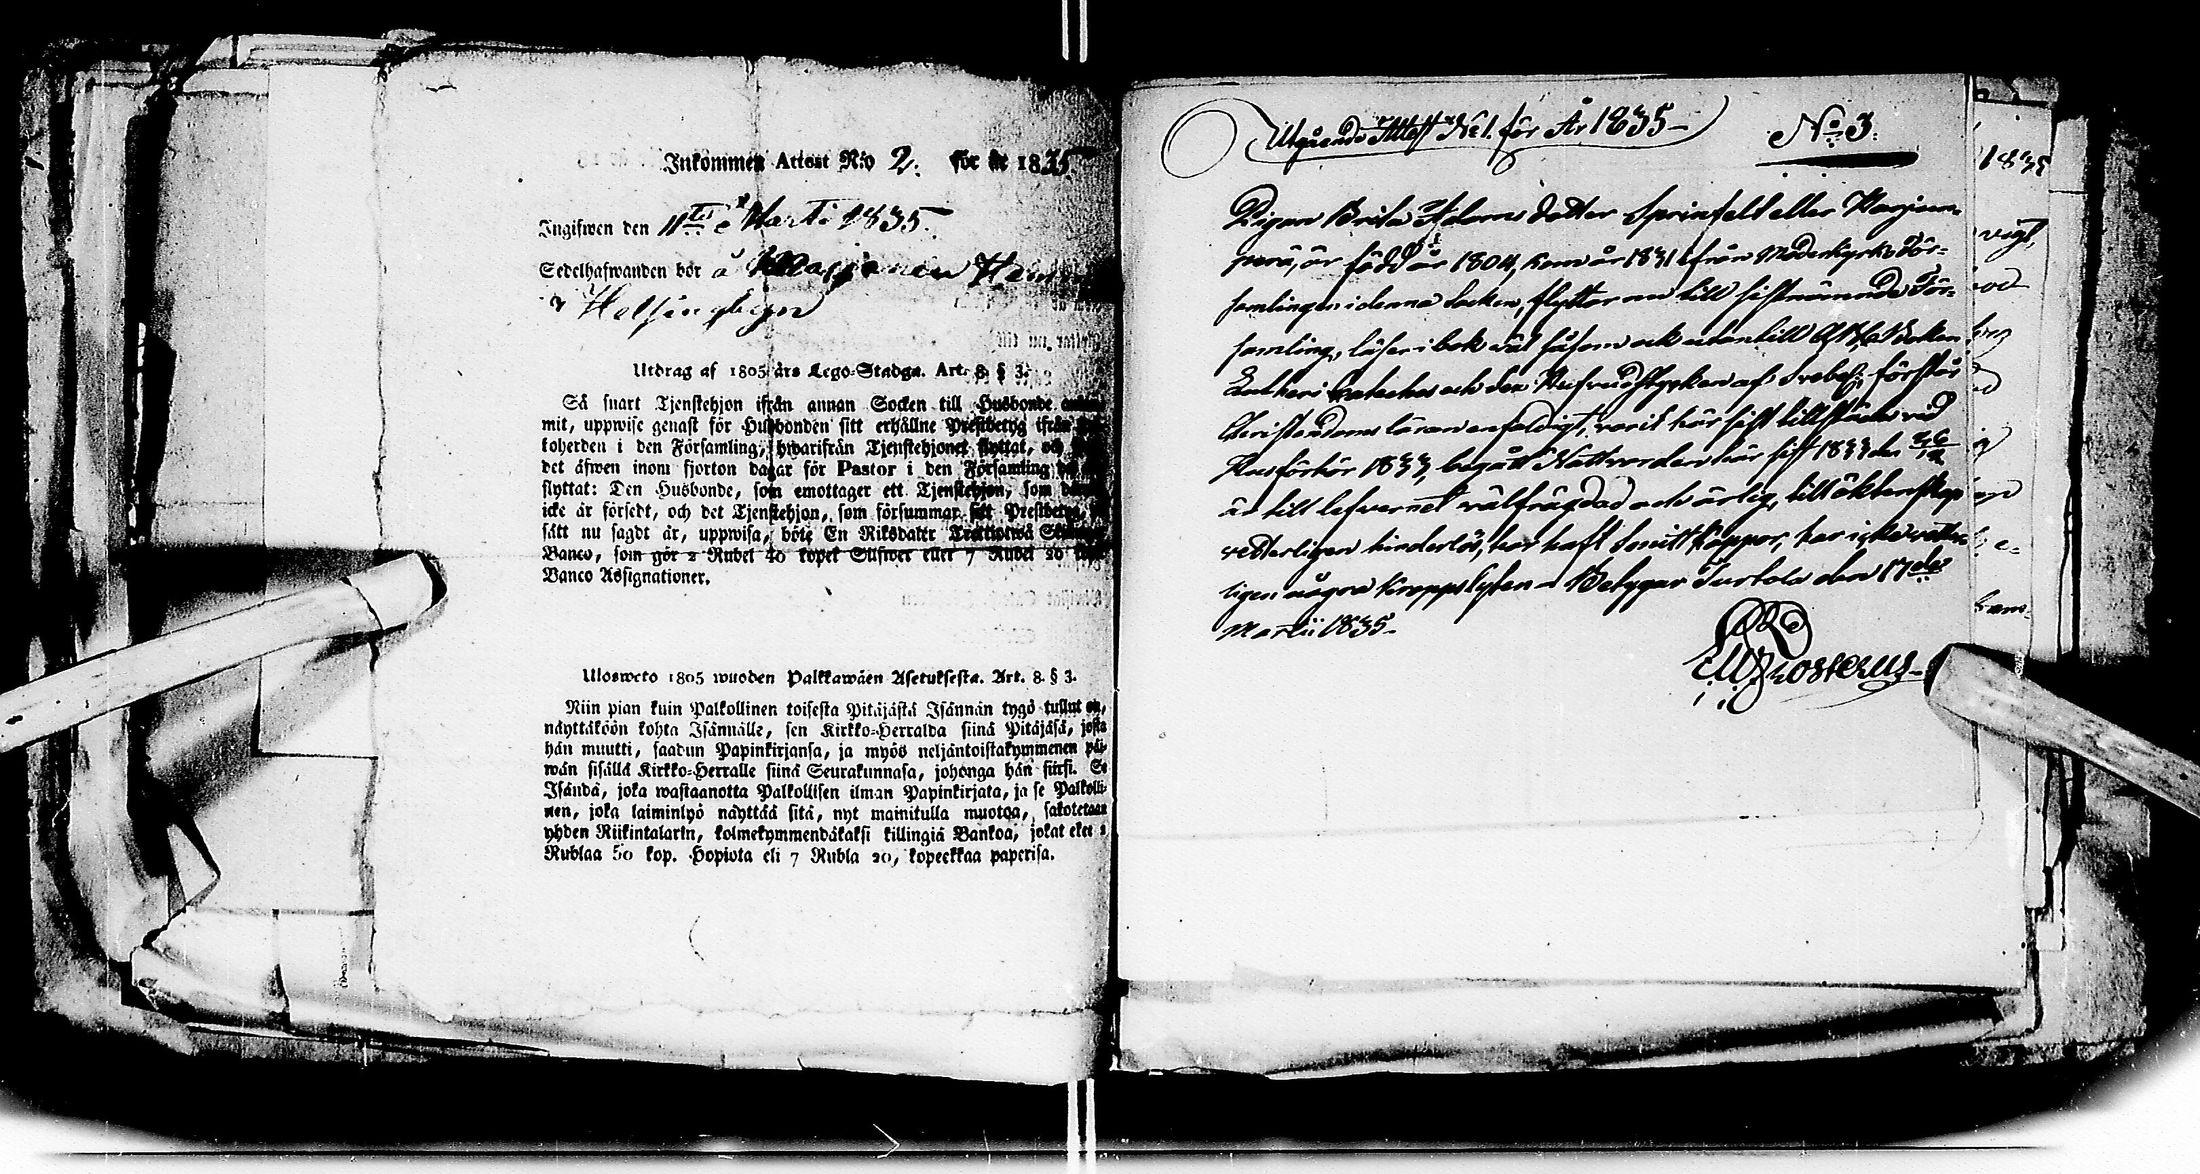 Inkommen Attest N:o 2. för år 1835.
Ingifwen den 11te Martii 1835.
Sedelhafwanden bor å
i Helsingbyn
Utdrag af 1805 års Lego-Stadga. Art. 8. § 3.
Så snart Tjenstehjon ifrån annan Socken till Husbonde
mit, uppwise genast för Husbonden sitt erhållne Prestbetyg ifrån
toherden i den Församling, hwarifrån Tjenstehjonet flyttat, och
det äfwen inom fjorton dagar för Pastor i den Församling
flyttat: Den Husbonde, som emottager ett Tjenstehjon, som
icke är försedt, och det Tjenstehjon, som försummar sitt Prestbetyg,
sätt nu sagdt är, uppwisa, böte En Riksdaler Trettiotwå
Banco, som gör 2 Rubel 40 kopek Silfwer eller 7 Rubel 20
Banco Assignationer.
Ulosweto 1805 wuoden Palkkawäen Asetuksesta. Art. 8. § 3.
Niin pian kuin Palkollinen toisesta Pitäjästä Isännän tygö tullut on,
näyttäköön kohta Isännälle, sen Kirkko-Herralda siinä Pitäjäsä, josta
hän muutti, saadun Papinkirjansa, ja myös neljäntoistakymmenen päi-
wän sisällä Kirkko-Herralle siinä Seurakunnasa, johonga hän siirsi. Se
Isändä, joka wastaanotta Palkollisen ilman Papinkirjata, ja se Palkolli-
nen, joka laiminlyö näyttää sitä, nyt mainitulla muotoa, sakotetaan
yhden Riikintalarin, kolmekymmendäkaksi killingiä Bankoa, jotat ekee 2
Rublaa 50 kop. Hopiota eli 7 Rubla 20, kopeekkaa paperisa.
Utgående Attest N:o 1. för År 1835
N:o 3.
Pigan Brita Adams dotter Sprinfelt eller Karjan-
perä, är född år 1804, kom år 1831 ifrån Moderkyrko För-
samlingen i denna Socken, flyttar nu till sistnämnde För-
samling, läser i bok väl såsom ock utantill Boken,
Lutheri Kateches och den af Svebel:, förstår
Christendoms läran enfaldigt, varit här sist tillstädes vid
Husförhör 1833, begått Nattvarden här sist 1833 den
är till lefvernet välfrägdad och ärlig, till äktenskap
vetterligen hinderlös, har haft Smittkoppor, har icke vetter-
ligen några kroppslyten. Betygar Turtola den 17de
Martii 1835.
1835